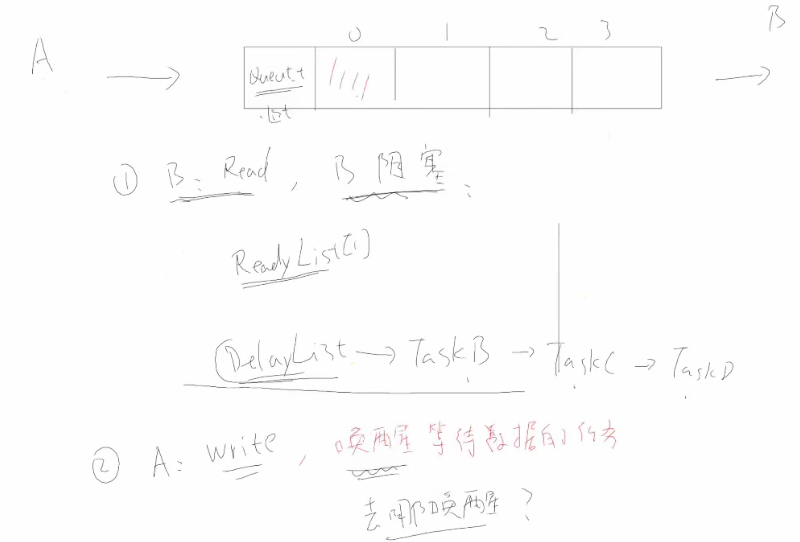 0 1 2 3
A B
Queue+
.List
① B: Read, B 阻塞:
ReadyList[1]
DelayList → TaskB → TaskC → TaskD
② A: write, 唤醒等待数据的任务
去哪唤醒?